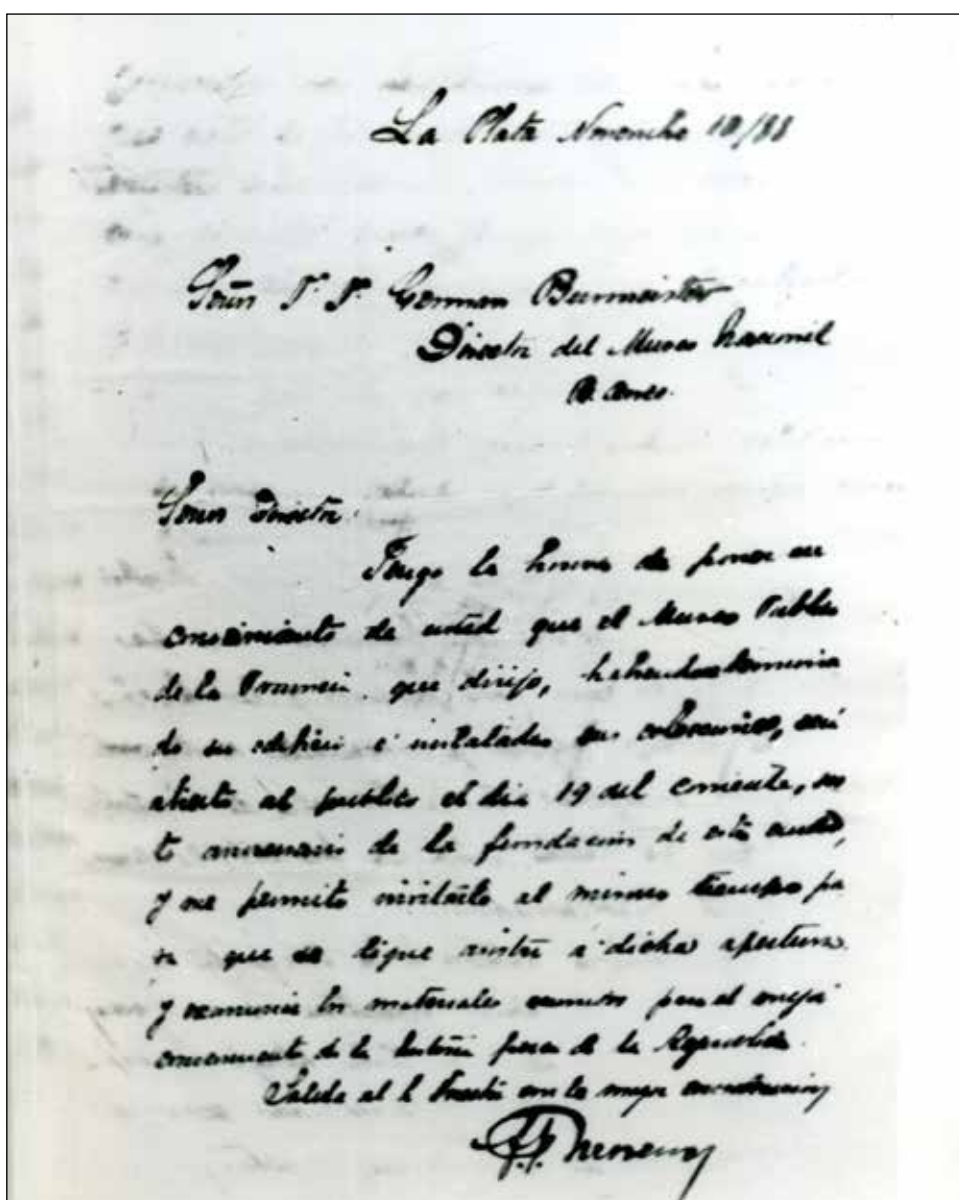 La Plata Noviembre 10/88
Señor Dr. Dr. German Burmeister
Director del Museo Nacional
B. Aires.
Señor Director.
Tengo la honra de poner en
conocimiento de usted que el Museo Publico
de la Provincia que dirijo, habiendose termina
do su edificio é instalado sus colecciones, será
abierto al publico el dia 19 del corriente,
aniversario de la fundacion de esta ciudad,
y me permito invitarlo al mismo tiempo pa
ra que se digne asistir á dicha apertura
y examinar los materiales reunidos para el mejor
conocimiento de la historia fisica de la Republica.
Saluda al Sr Director con la mayor consideracion
F. P. Moreno